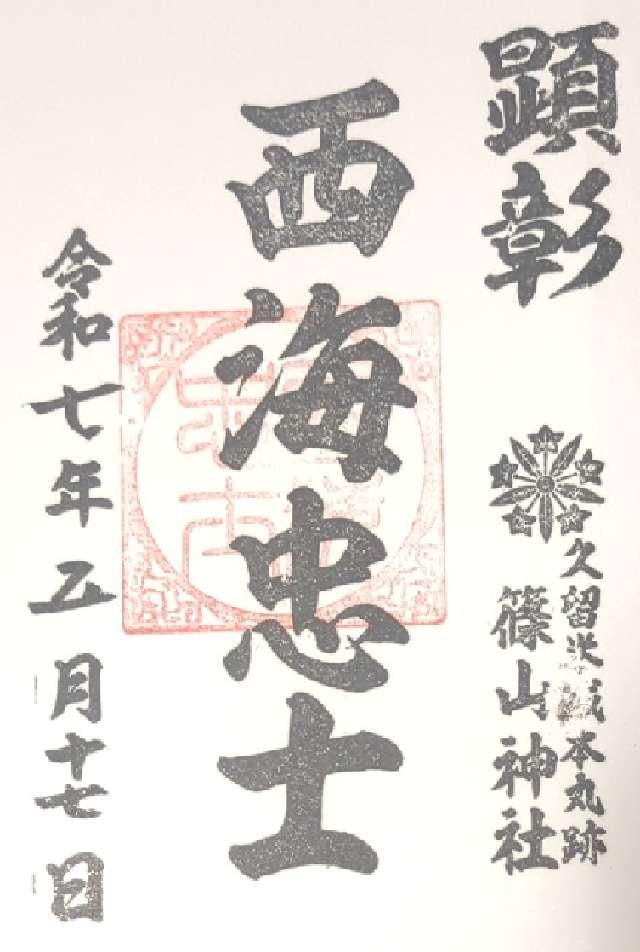 顕彰
久留米城本丸跡
篠山神社
西海忠士
令和七年五月十七日